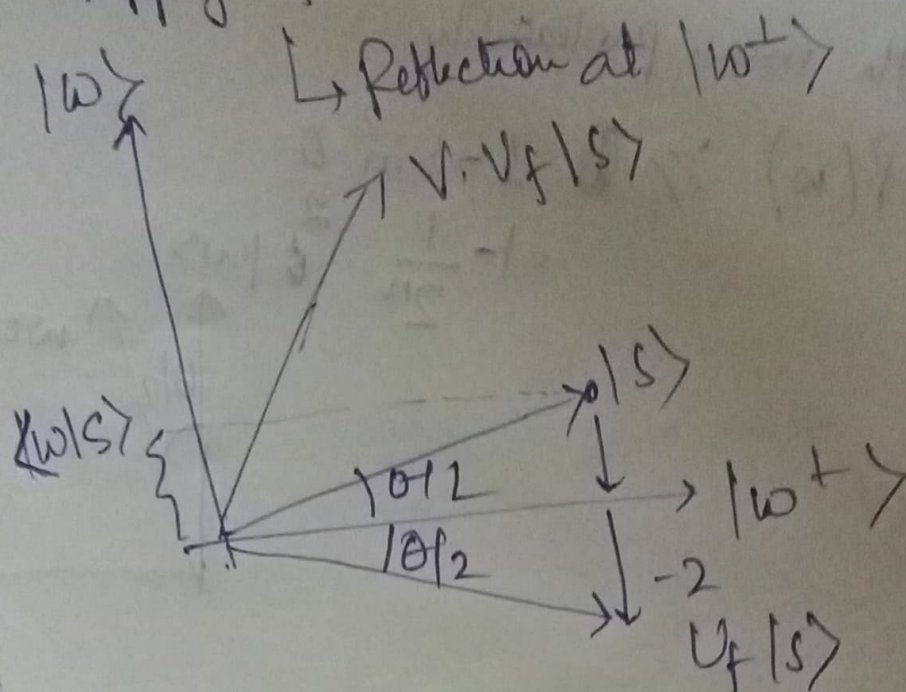 ↳ Reflection at |w⊥⟩
|w⟩
V·Uf|S⟩
|S⟩
⟨w|S⟩
θ/2
|w⊥⟩
θ/2
-2
Uf|S⟩